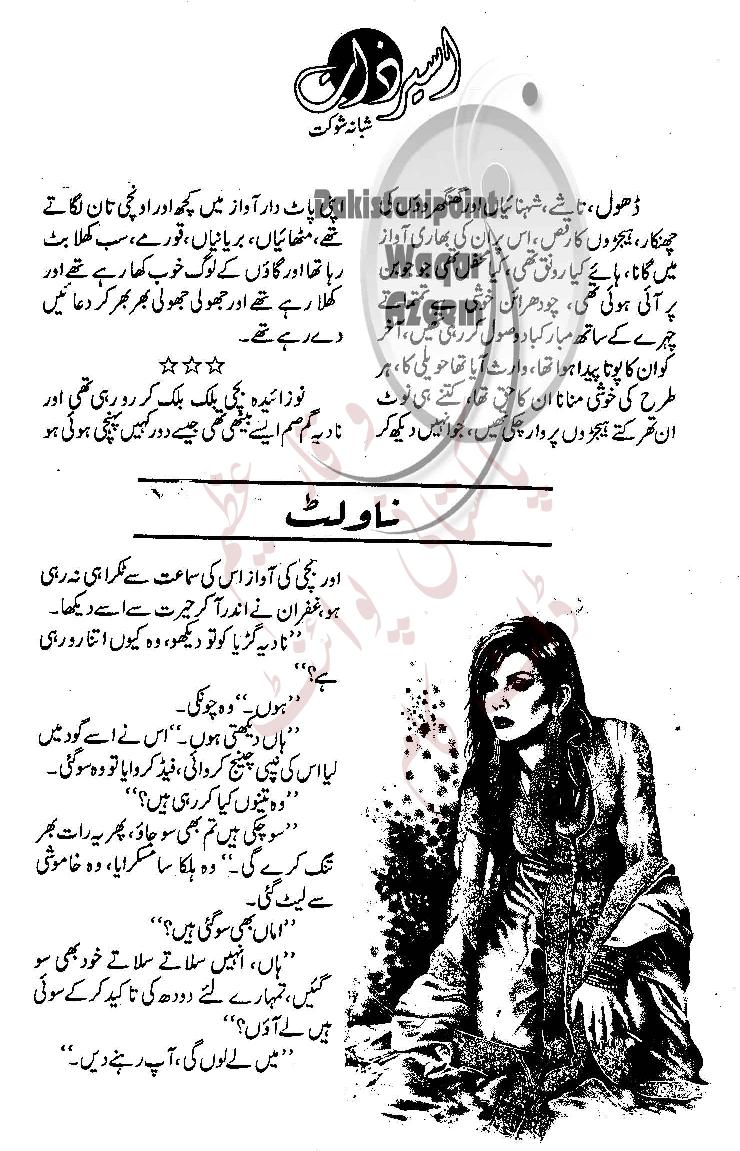 اسیر ذات
شبانہ شوکت
ڈھول، تاشے، شہنائیاں اور گھنگھروؤں کی
چھنکار، ہیجڑوں کا رقص، اس پر ان کی بھاری آواز
میں گانا، ہائے کیا رونق تھی، کیا محفل تھی جو جوبن
پر آئی ہوئی تھی، چودھرائن خوشی سے تمتماتے
چہرے کے ساتھ مبارکباد وصول کر رہی تھیں، آخر
کو ان کا پوتا پیدا ہوا تھا، وارث آیا تھا حویلی کا، ہر
طرح کی خوشی منانا ان کا حق تھا، کتنے ہی نوٹ
ان تھرکتے ہیجڑوں پر وار چکی تھیں، جو انہیں دیکھ کر
اپنی پاٹ دار آواز میں کچھ اور اونچی تان لگاتے
تھے، مٹھائیاں، بریانیاں، قورمے، سب کھلا بٹ
رہا تھا اور گاؤں کے لوگ خوب کھا رہے تھے اور
کھلا رہے تھے اور جھولی جھولی بھر بھر کر دعائیں
دے رہے تھے۔
☆☆☆
نوزائیدہ بچی بلک بلک کر رو رہی تھی اور
نادیہ گم صم ایسے بیٹھی تھی جیسے دور کہیں پہنچی ہوئی ہو
ناولٹ
اور بچی کی آواز اس کی سماعت سے ٹکرا ہی نہ رہی
ہو، غفران نے اندر آ کر حیرت سے اسے دیکھا۔
’’نادیہ گڑیا کو تو دیکھو، وہ کیوں اتنا رو رہی
ہے؟‘‘
’’ہوں۔‘‘ وہ چونکی۔
’’ہاں دیکھتی ہوں۔‘‘ اس نے اسے گود میں
لیا اس کی نیپی چینج کروائی، فیڈ کروایا تو وہ سو گئی۔
’’وہ تینوں کیا کر رہی ہیں؟‘‘
’’سو چکی ہیں تم بھی سو جاؤ، پھر یہ رات بھر
تنگ کرے گی۔‘‘ وہ ہلکا سا مسکرایا، وہ خاموشی
سے لیٹ گئی۔
’’اماں بھی سو گئی ہیں؟‘‘
’’ہاں، انہیں سلاتے سلاتے خود بھی سو
گئیں، تمہارے لئے دودھ کی تاکید کر کے سوئی
ہیں لے آؤں؟‘‘
’’میں لے لوں گی، آپ رہنے دیں۔‘‘
Pakistanipoint
Waqar
Azeem
وقار عظیم
پاکستانی پوائنٹ